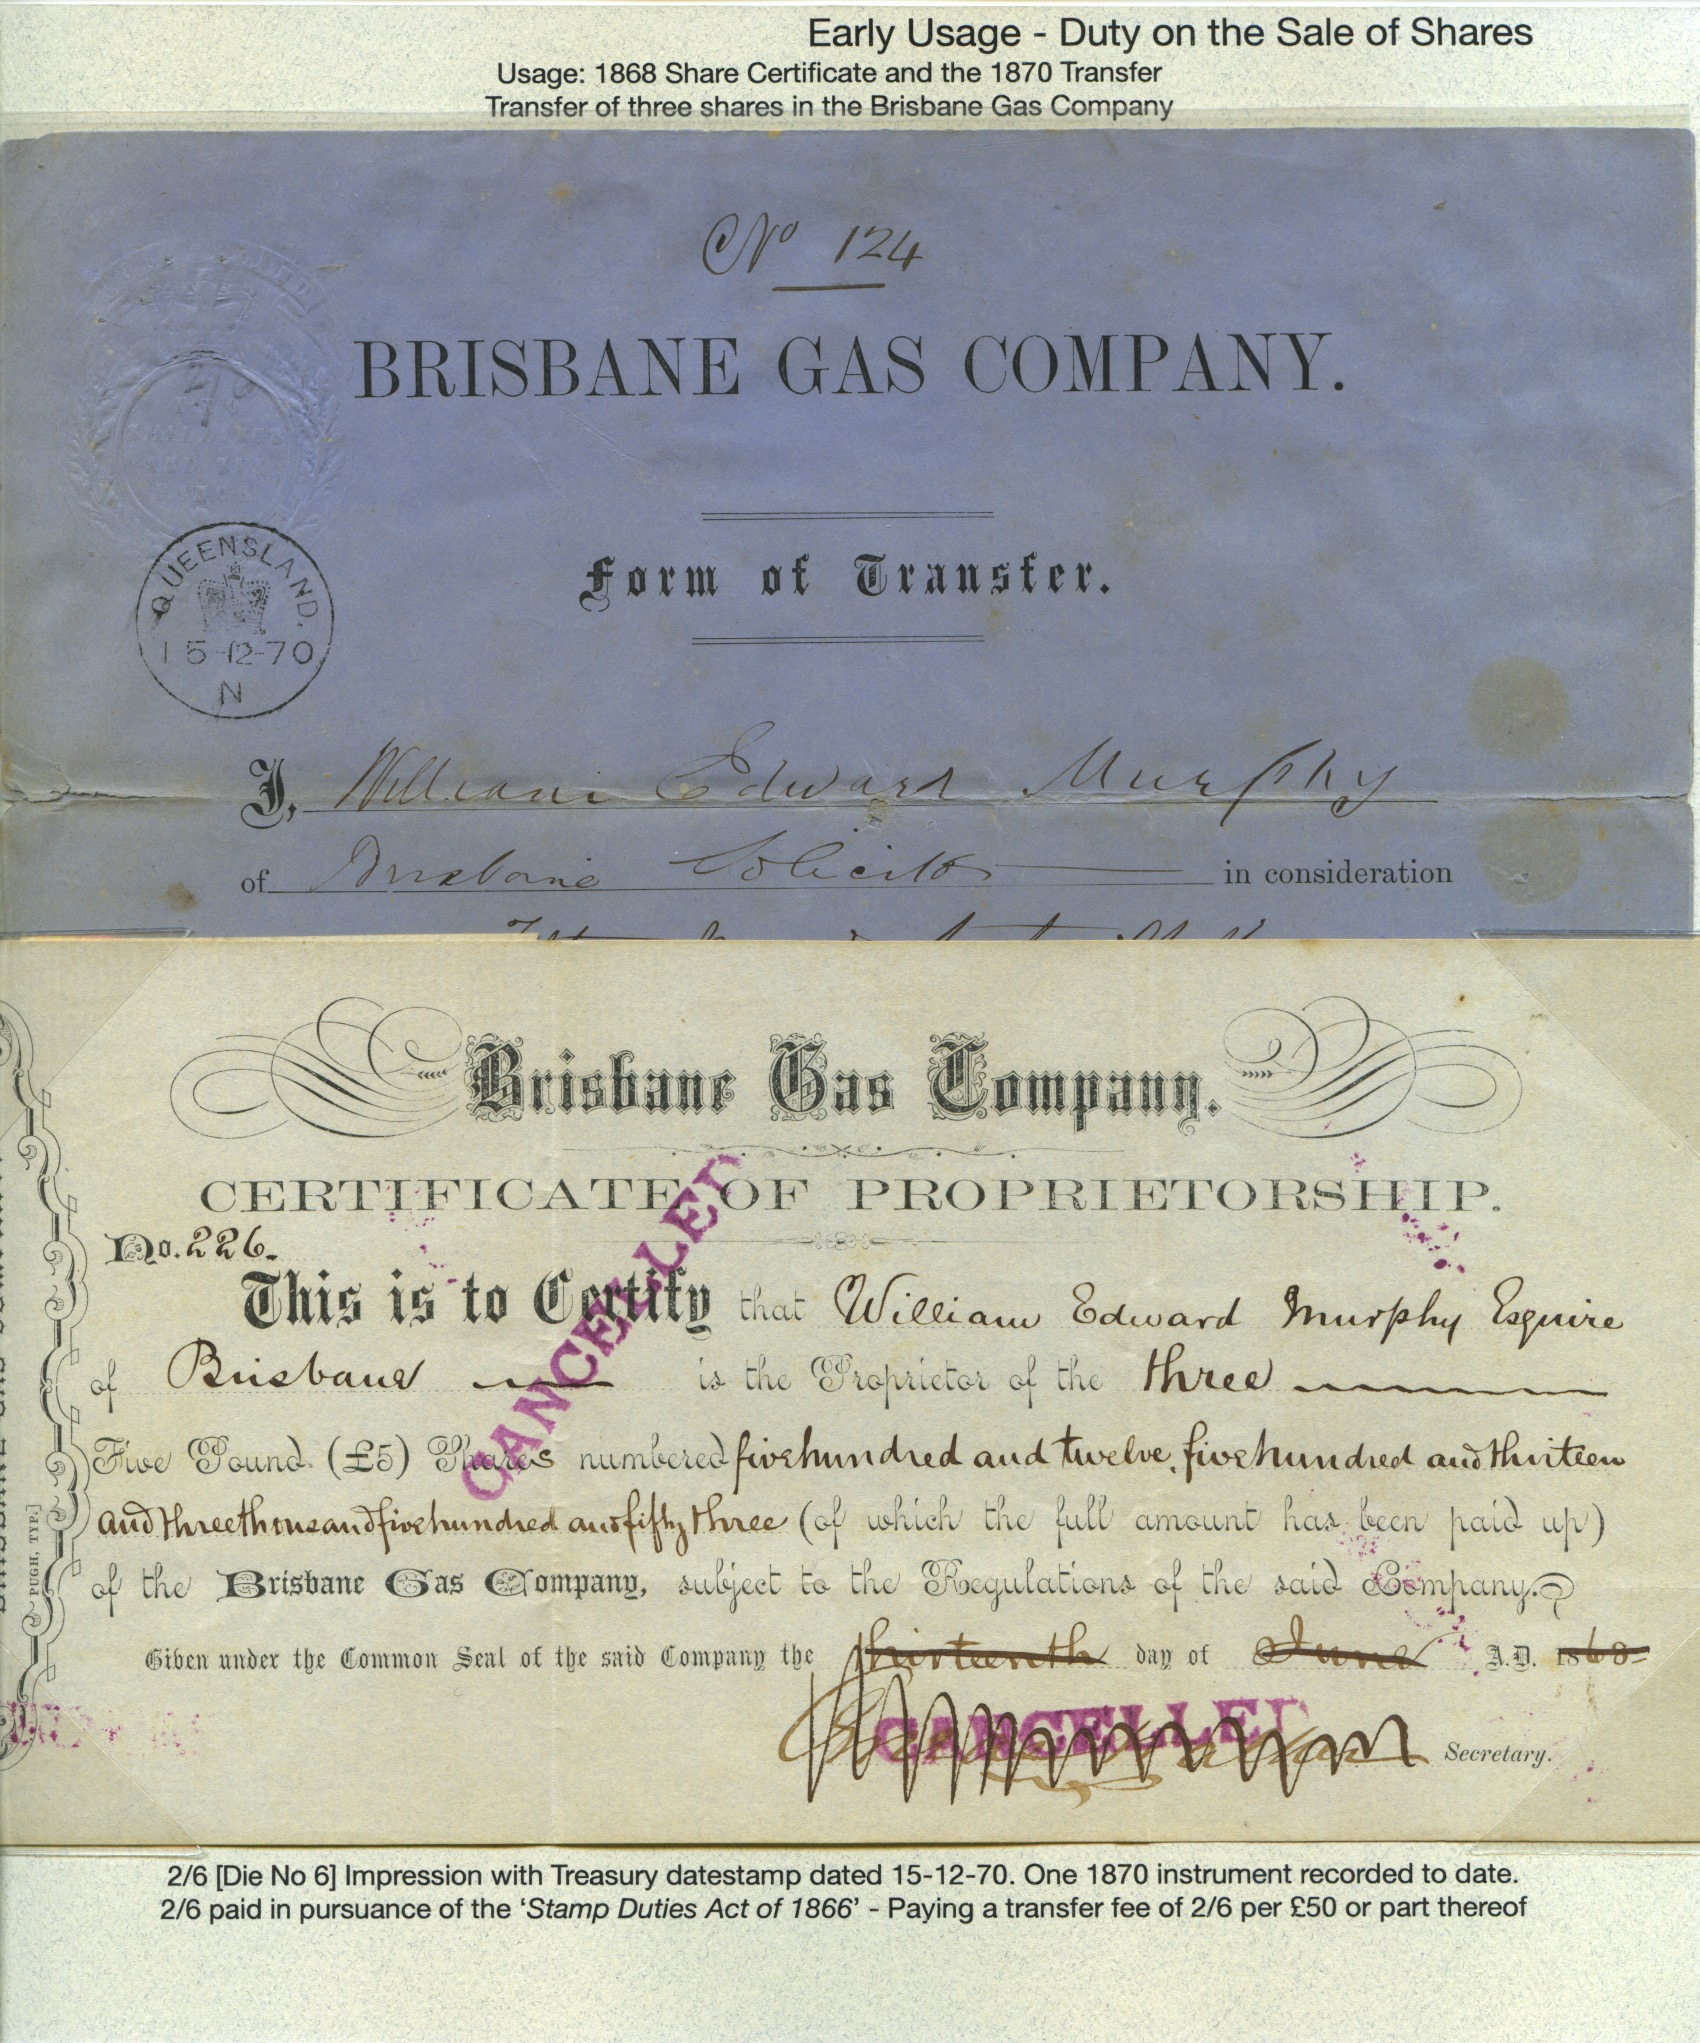 Early Usage - Duty on the Sale of Shares
Usage: 1868 Share Certificate and the 1870 Transfer
Transfer of three shares in the Brisbane Gas Company
No 124
BRISBANE GAS COMPANY.
Form of Transfer.
QUEENSLAND.
15-12-70
N
I, William Edward Murphy
of Brisbane Solicitor in consideration
Brisbane Gas Company.
CERTIFICATE OF PROPRIETORSHIP.
No. 226.
This is to Certify that William Edward Murphy Esquire
of Brisbane is the Proprietor of the three
Five Pound (£5) Shares numbered five hundred and twelve, five hundred and thirteen
and three thousand five hundred and fifty three (of which the full amount has been paid up)
of the Brisbane Gas Company, subject to the Regulations of the said Company.
Given under the Common Seal of the said Company the thirteenth day of June A.D. 1868
CANCELLED
CANCELLED
Secretary.
PUGH, TYP.]
2/6 [Die No 6] Impression with Treasury datestamp dated 15-12-70. One 1870 instrument recorded to date.
2/6 paid in pursuance of the ‘Stamp Duties Act of 1866’ - Paying a transfer fee of 2/6 per £50 or part thereof